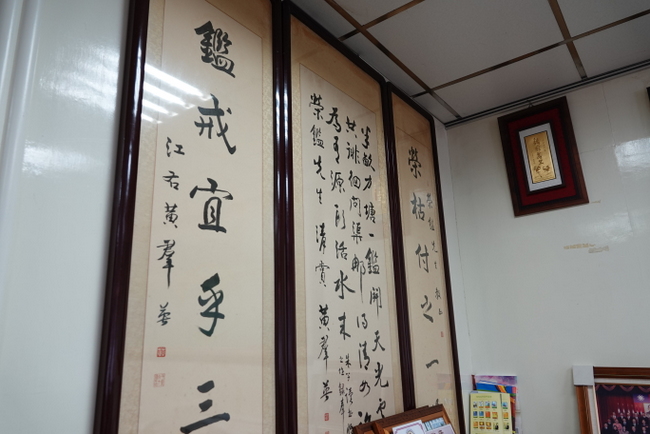 榮枯付之一
半畝方塘一鑑開天光雲
共徘徊問渠那得清如許
為有源頭活水來
榮鑑先生 清賞 黃羣英
鑑戒宜乎三
江右黃羣英